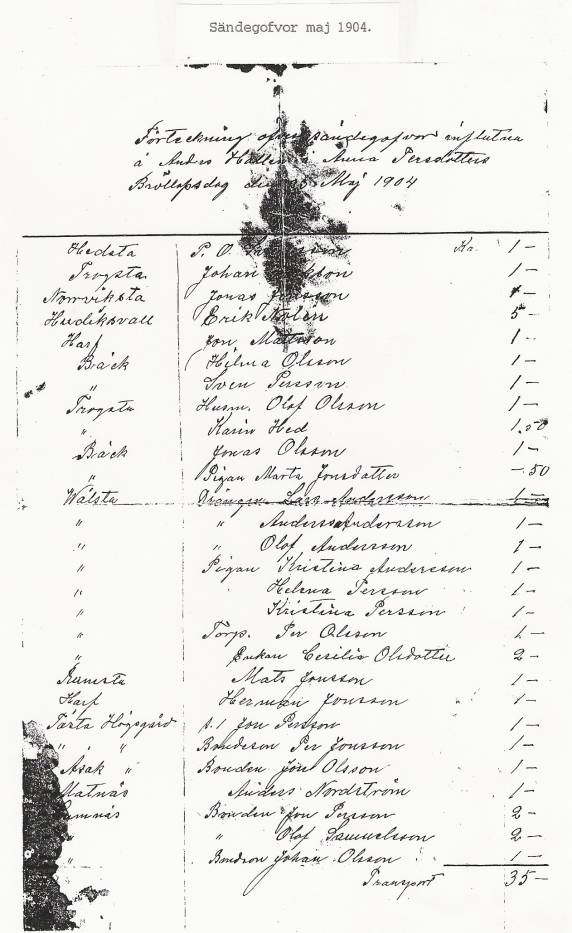 Sändegofvor maj 1904.
Förteckning sändegofvor influtna
å Anders Anna Persdotters
Bröllopsdag den Maj 1904
Hedsta P. O. Kr. 1 -
Trogsta Johan 1 -
Norrviksta Jonas Jonsson 1 -
Hudiksvall Erik Nolén 5 -
Harf Jon Mattsson 1 -
Bäck Hilma Olsson 1 -
" Sven Persson 1 -
Trogsta Husm. Olof Olsson 1 -
" Karin Hed 1.50
Bäck Jonas Olsson 1 -
" Pigan Marta Jonsdotter -.50
Wålsta Drängen Lars Andersson 1 -
" " Anders Andersson 1 -
" " Olof Andersson 1 -
" Pigan Kristina Andersson 1 -
" Helena Persson 1 -
" Kristina Persson 1 -
" Torp. Per Olsson 1 -
" Enkan Cecilia Olsdotter 2 -
Ramsta Mats Jonsson 1 -
Harf Herman Jonsson 1 -
Tärta Högsgård Jon Persson 1 -
" " Bondeson Per Jonsson 1 -
Åsak " Bonden Jon Olsson 1 -
Matnäs Anders Nordström 1 -
Bonden Jon Persson 2 -
" Olof Samuelsson 2 -
" Bondson Johan Olsson 1 -
Transport 35 -